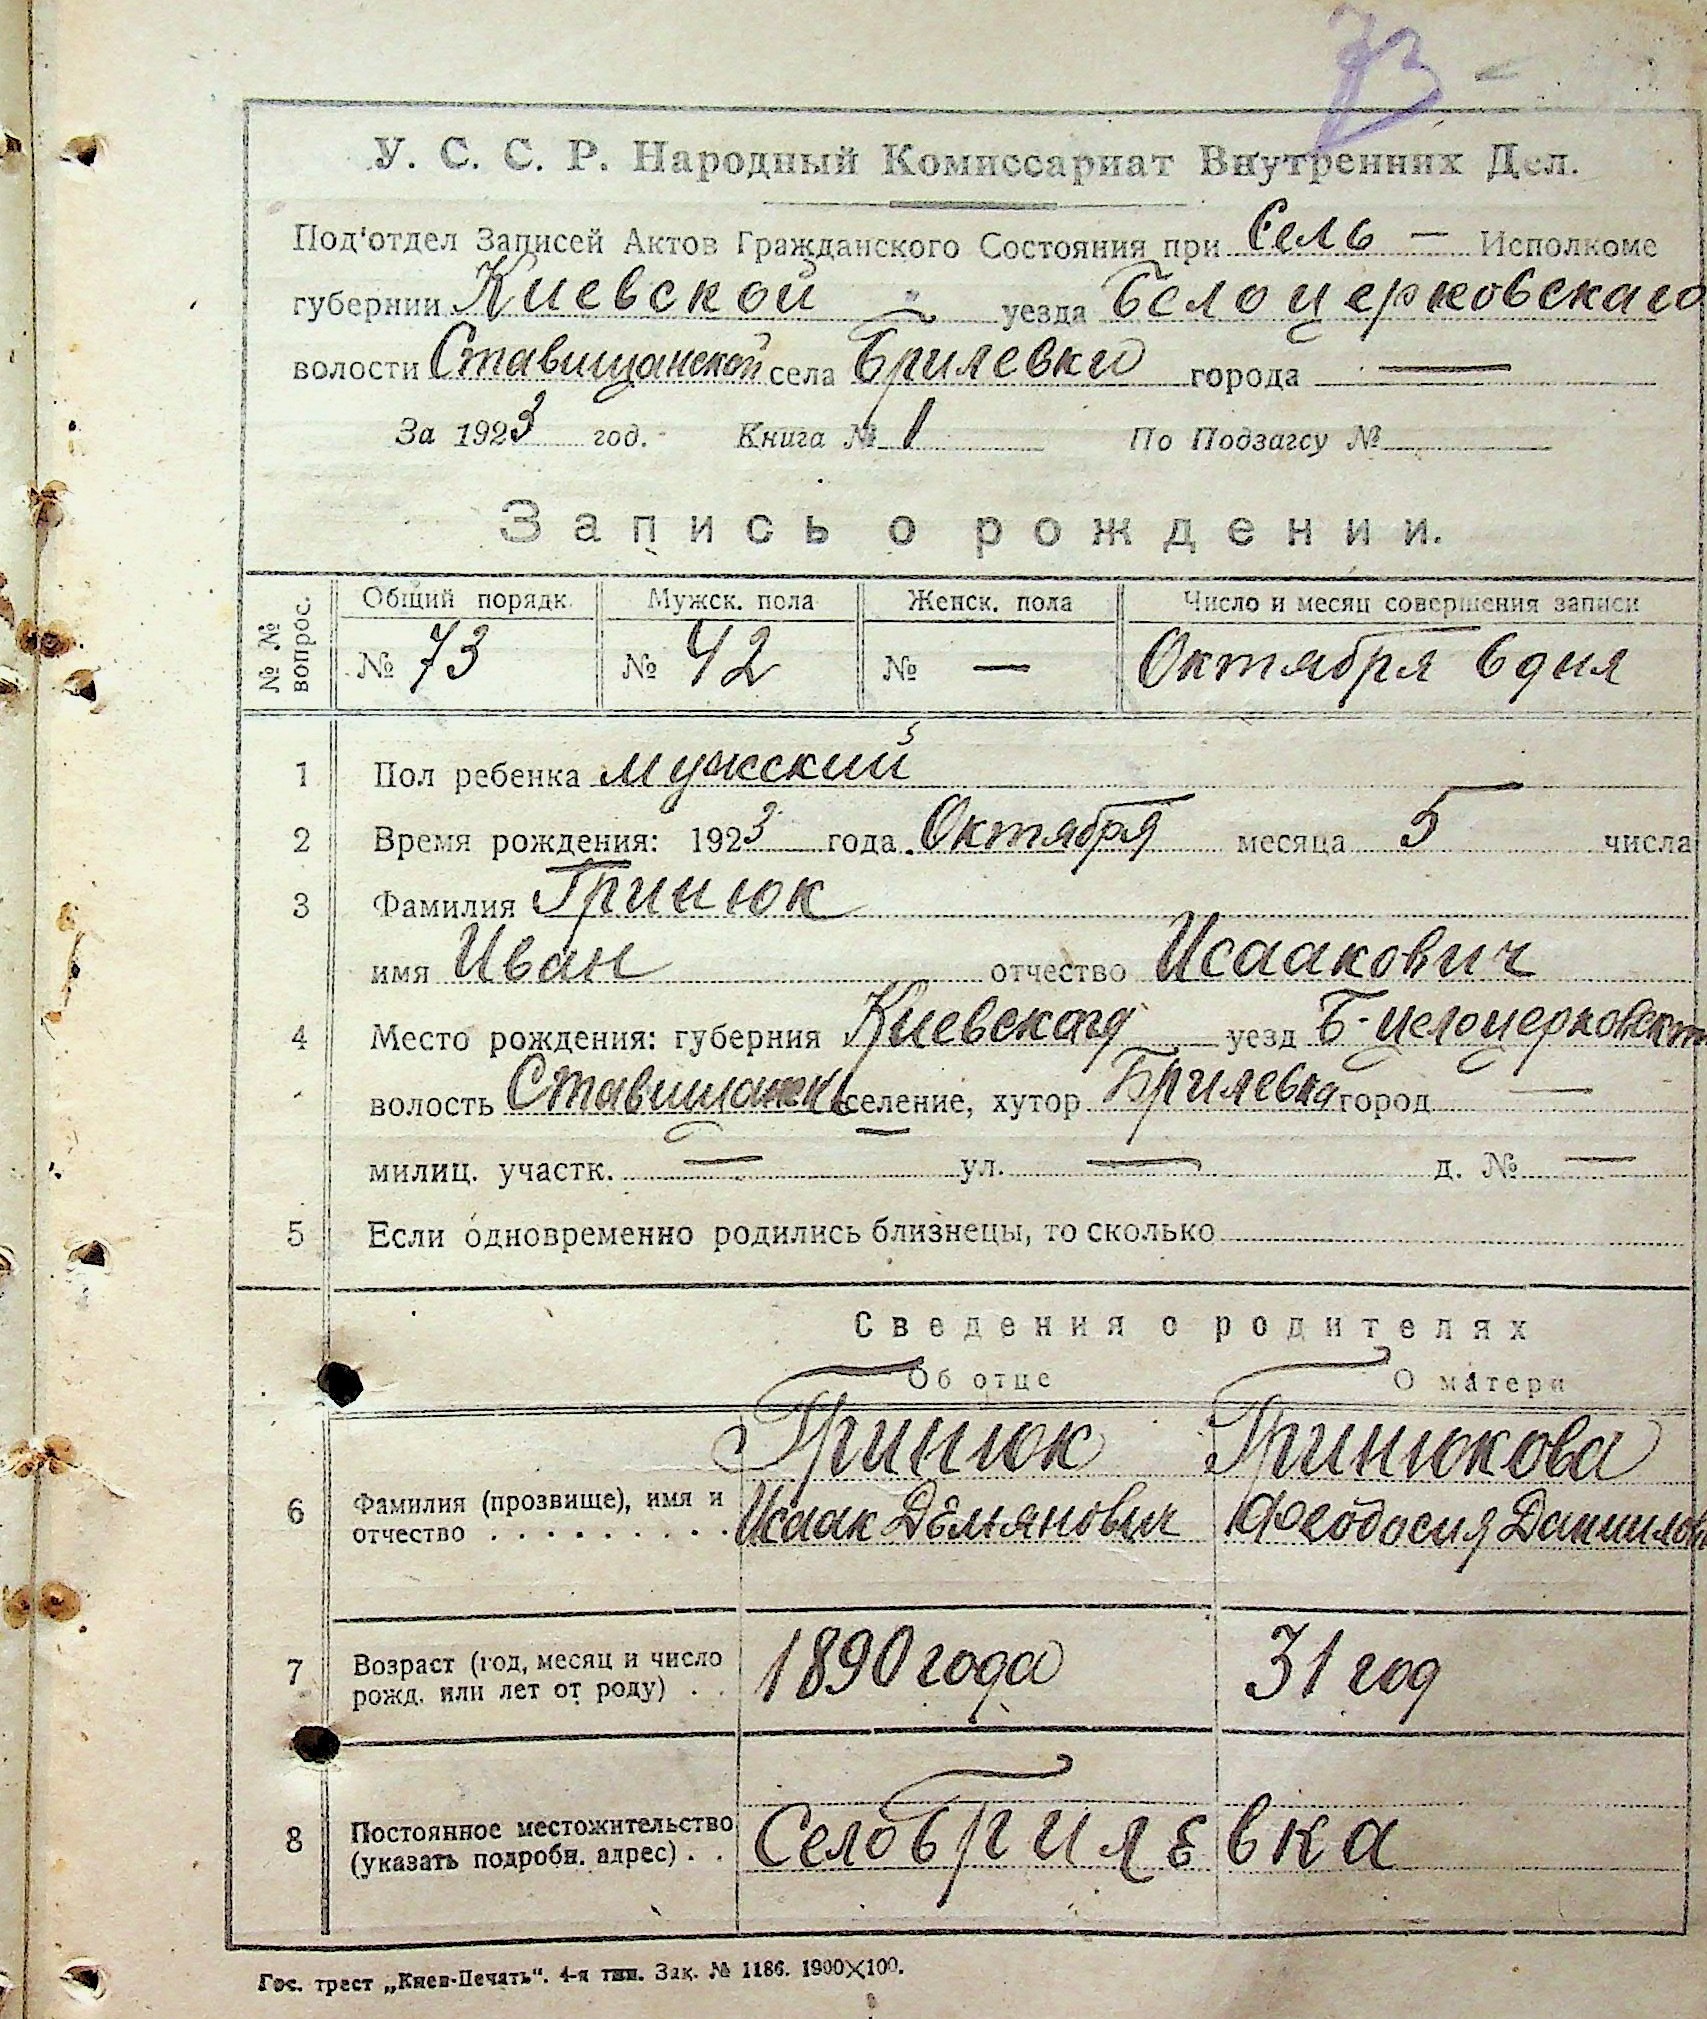 73
У. С. С. Р. Народный Комиссариат Внутренних Дел.
Под'отдел Записей Актов Гражданского Состояния при Сель — Исполкоме
губернии Киевской уезда Белоцерковскаго
волости Ставищанской села Брилевки города —
За 1923 год. Книга № 1 По Подзагсу №
Запись о рождении.
№ № вопрос. Общий порядк. Мужск. пола Женск. пола Число и месяц совершения записи
№ 73 № 42 № — Октября 6 дня
1 Пол ребенка мужский
2 Время рождения: 1923 года Октября месяца 5 числа
3 Фамилия Гринюк
имя Иван отчество Исаакович
4 Место рождения: губерния Киевская уезд
волость селение, хутор Брилевка город —
милиц. участк. — ул. — д. № —
5 Если одновременно родились близнецы, то сколько
Сведения о родителях
Об отце О матери
Гринюк Гринюкова
6 Фамилия (прозвище), имя и
отчество . . . . . . . . . Исаак Демянович Феодосия
7 Возраст (год, месяц и число
рожд. или лет от роду) . . 1890 года 31 год
8 Постоянное местожительство
(указать подробн. адрес) . . Село Брилевка
Гос. трест „Киев-Печать“. 4-я тип. Зак. № 1186. 1900×100.